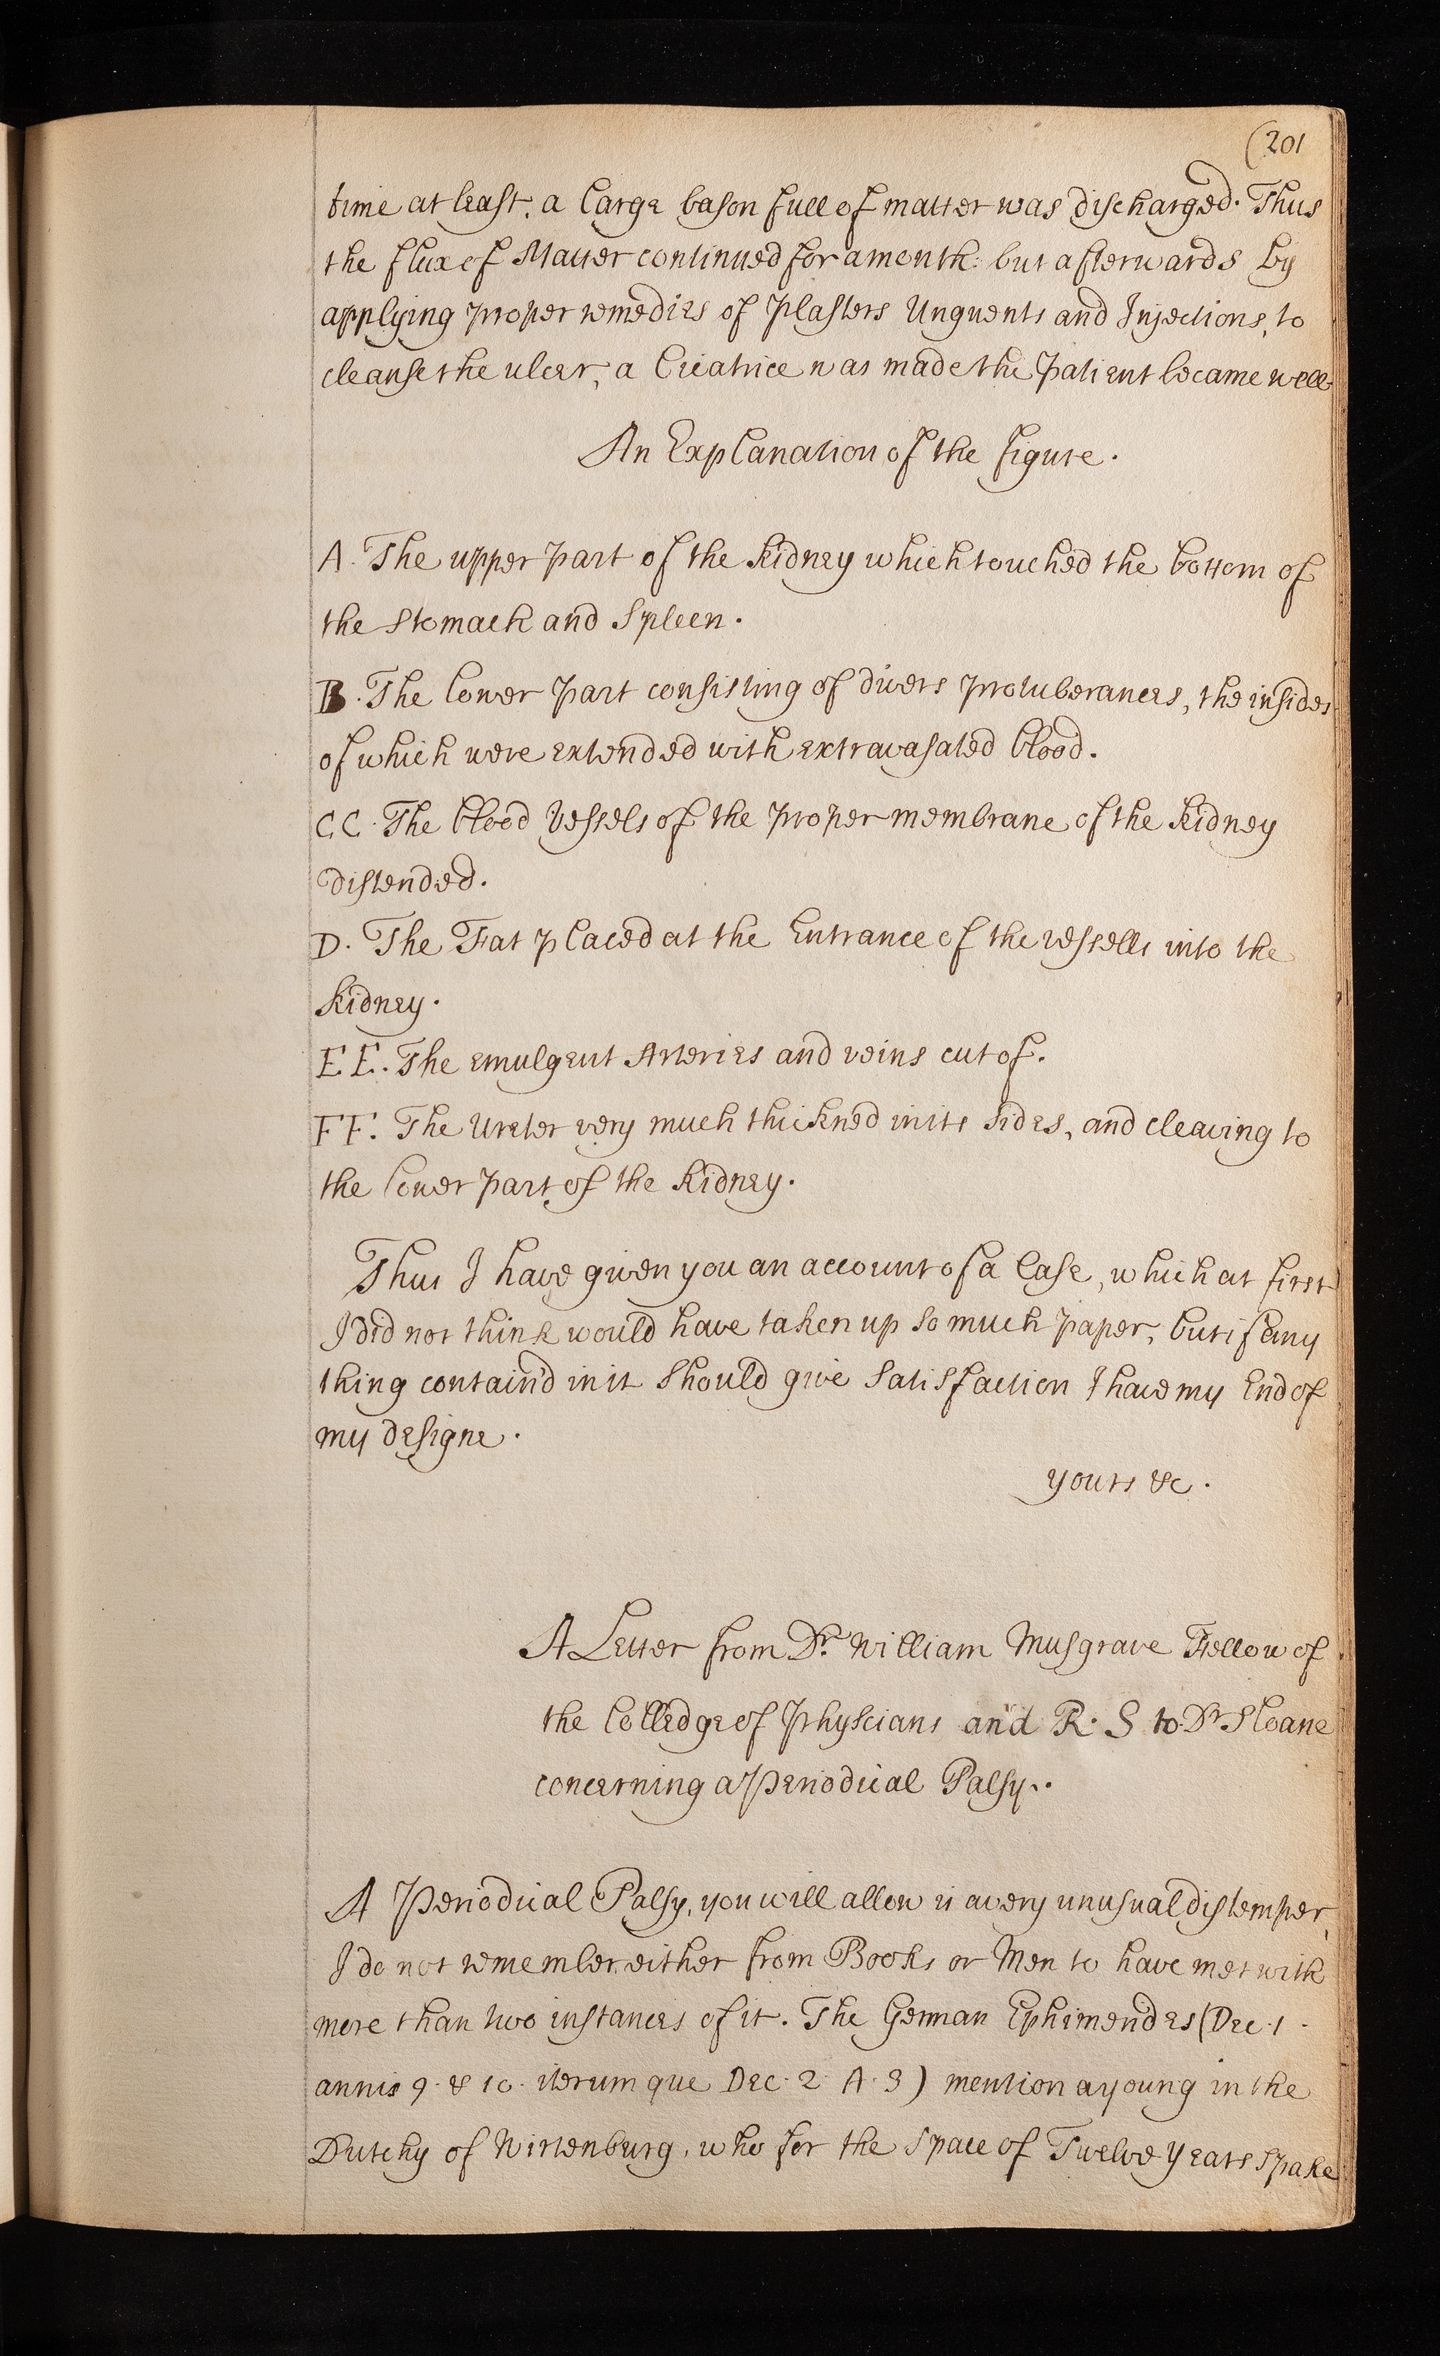 (201
time at least, a large bason full of matter was discharged. Thus
the flux of Matter continued for a month: but afterwards by
applying proper remedies of Plasters Unguents and Injections, to
cleanse the ulcer, a Cicatrice was made the Patient became well.
An Explanation of the figure.
A. The upper part of the Kidney which touched the bottom of
the Stomach and Spleen.
B. The lower Part consisting of divers protuberances, the insides
of which were extended with extravasated blood.
C.C. The blood Vessels of the proper membrane of the Kidney
distended.
D. The Fat placed at the Entrance of the vessells into the
Kidney.
E E. The emulgent Arteries and veins cut of.
F F. The Ureter very much thickned in its sides, and cleaving to
the lower part of the Kidney.
Thus I have given you an account of a Case, which at first
I did not think would have taken up so much paper, but if any
thing contain'd in it should give Satisfaction I have my End of
my designe.
yours &c.
A Letter from Dr. William Musgrave Fellow of
the Colledge of Physcians and R. S to Dr Sloane
concerning a Periodical Palsy.
A Periodical Palsy, you will allow is a very unusual distemper,
I do not remember either from Books or Men to have met with
more than two instances of it. The German Ephimendes (Dec. 1.
annis 9. & 10. iterum que Dec. 2. A. 3) mention a young in the
Dutchy of Wirtenburg, who for the Space of Twelve Years spake